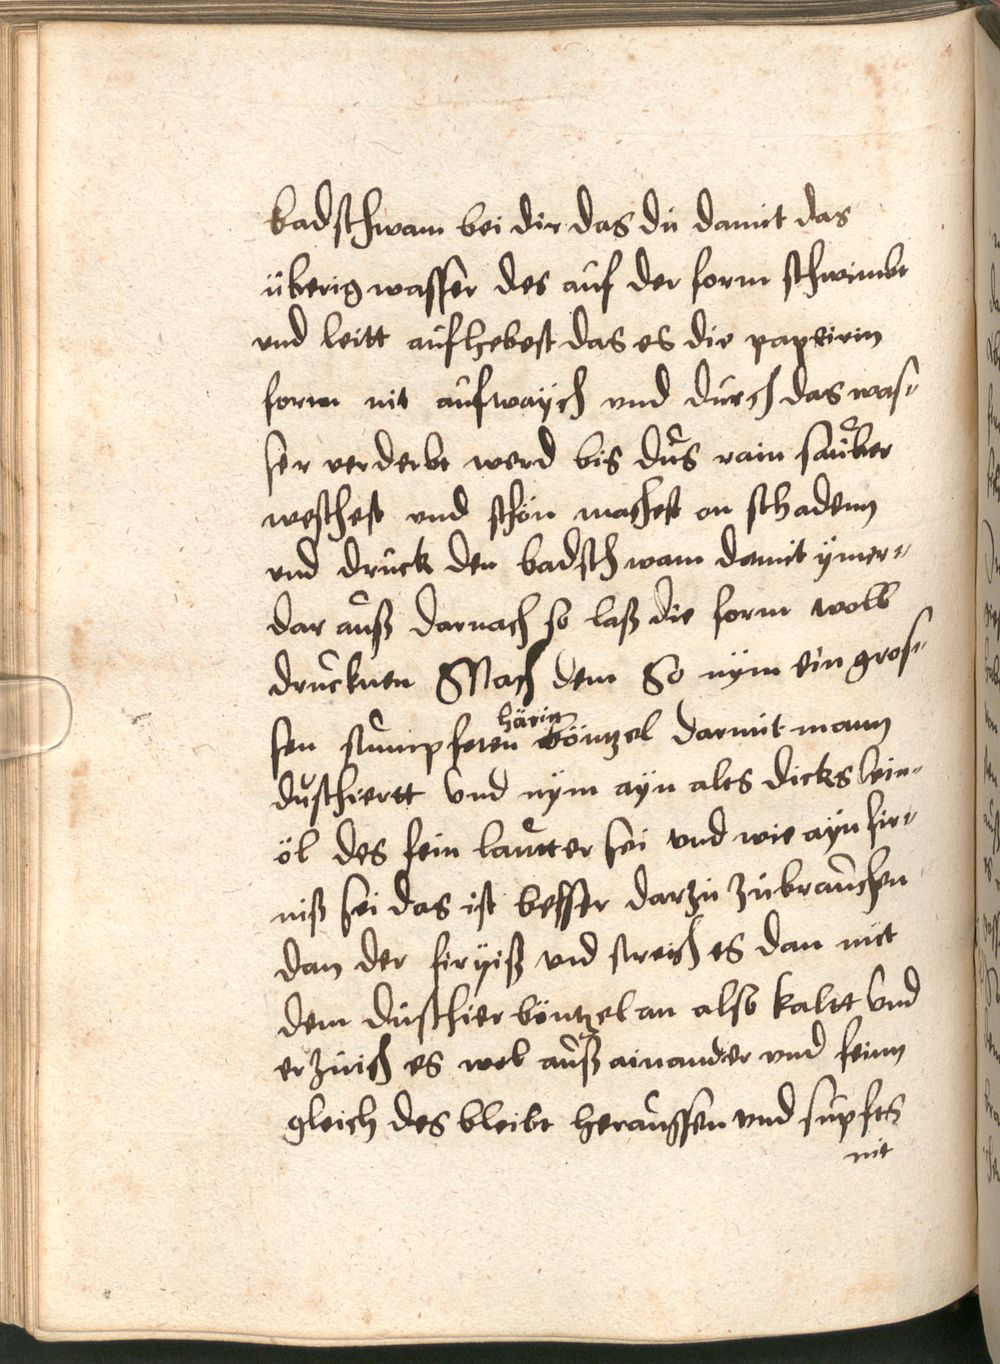 badschwam bei dir das du damit das
überig wasser des auf der form schwimbt
vnd leitt aufhebest das es die papeirin
form nit aufwaÿch vnd durch das was=
ser verderbt werd bis dus rain sauber
weschest vnd schön machest on schadenn
vnd druck den badschwam damit ÿmer=
dar auß darnach so laß die form woll
drucknen Nach dem So nÿm ein gros=
sen stumpfeten härin böntzel darmit mann
duschiertt Vnd nÿm aÿn alts dicks lein=
öl des fein lautter sei vnd wie aÿn fir=
niß sei das ist besser darzu zubrauchen
dan der firniß vnd streich es dan mit
dem duschier böntzel an also kaltt Vnd
erzuich es wol auß ainander vnd feinn
gleich des bleibt heraussen vnd supfts
nit